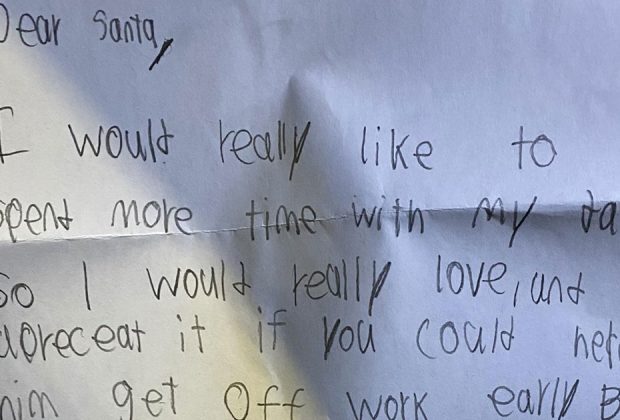 Dear Santa,
I would really like to
spent more time with my da
So I would really love, and
apreceat it if you could help
him get off work early B